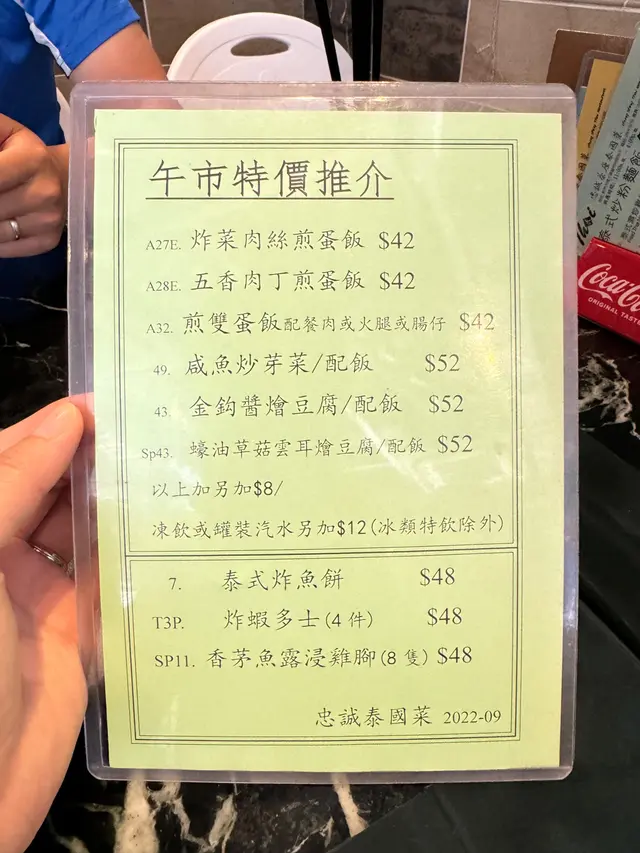 午市特價推介
A27E. 炸菜肉絲煎蛋飯 $42
A28E. 五香肉丁煎蛋飯 $42
A32. 煎雙蛋飯配餐肉或火腿或腸仔 $42
49. 咸魚炒芽菜/配飯 $52
43. 金鈎醬燴豆腐/配飯 $52
Sp43. 蠔油草菇雲耳燴豆腐/配飯 $52
以上加另加$8/
凍飲或罐裝汽水另加$12(冰類特飲除外)
7. 泰式炸魚餅 $48
T3P. 炸蝦多士(4 件) $48
SP11. 香茅魚露浸雞腳(8 隻) $48
忠誠泰國菜 2022-09
Coca-Co
ORIGINAL TASTE
泰式炒粉麵飯